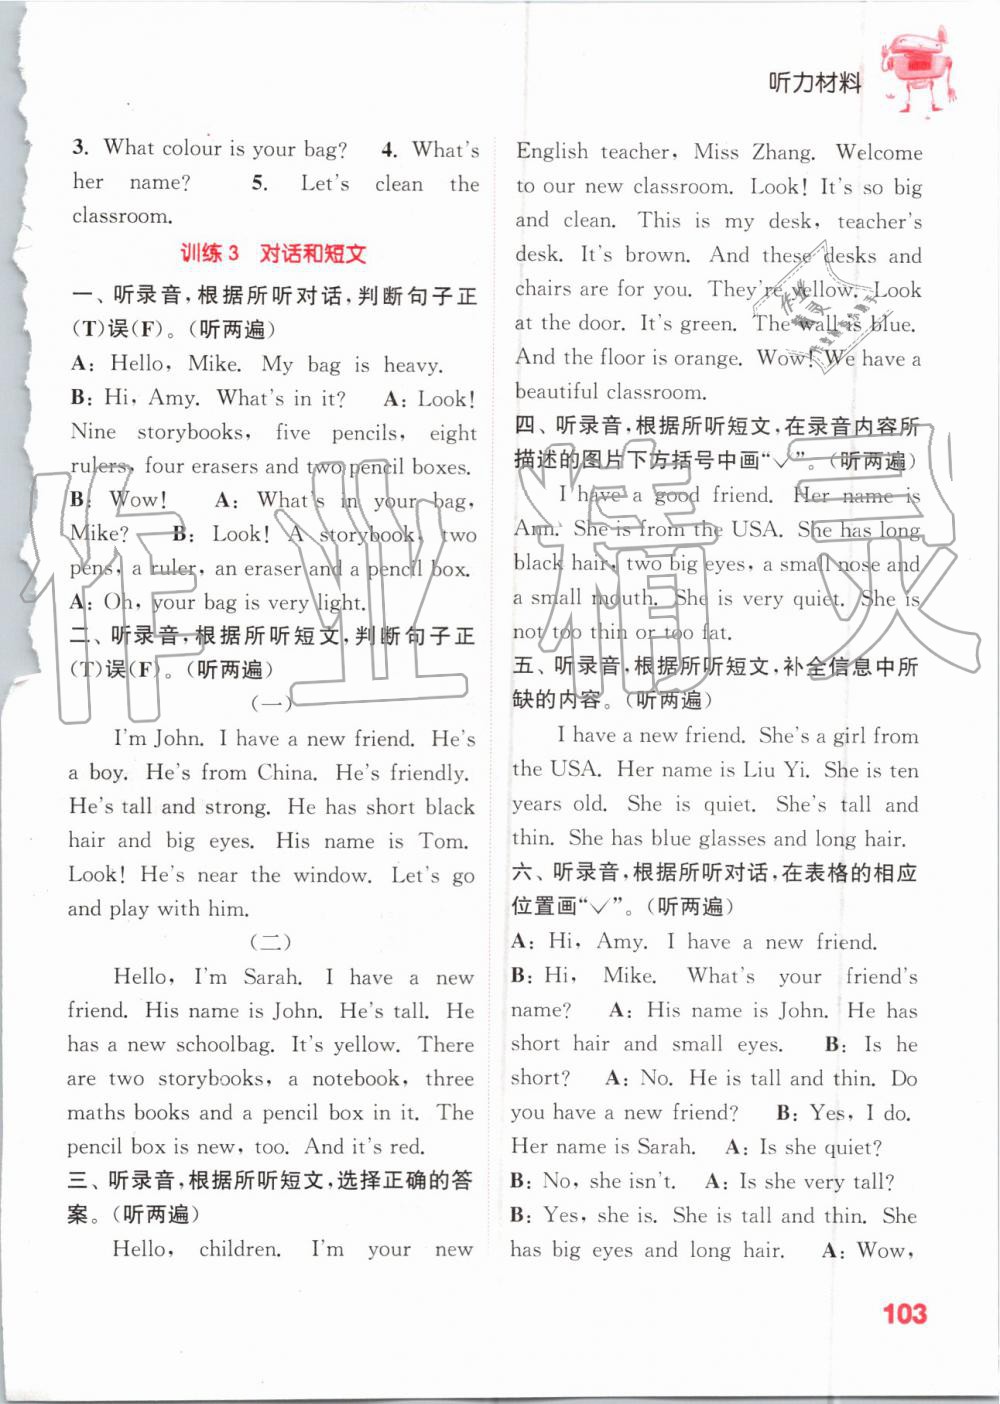 听力材料
3. What colour is your bag? 4. What's
her name? 5. Let's clean the
classroom.
训练 3 对话和短文
一、听录音,根据所听对话,判断句子正
(T)误(F)。(听两遍)
A: Hello, Mike. My bag is heavy.
B: Hi, Amy. What's in it? A: Look!
Nine storybooks, five pencils, eight
rulers, four erasers and two pencil boxes.
B: Wow! A: What's in your bag,
Mike? B: Look! A storybook, two
pens, a ruler, an eraser and a pencil box.
A: Oh, your bag is very light.
二、听录音,根据所听短文,判断句子正
(T)误(F)。(听两遍)
(一)
I'm John. I have a new friend. He's
a boy. He's from China. He's friendly.
He's tall and strong. He has short black
hair and big eyes. His name is Tom.
Look! He's near the window. Let's go
and play with him.
(二)
Hello, I'm Sarah. I have a new
friend. His name is John. He's tall. He
has a new schoolbag. It's yellow. There
are two storybooks, a notebook, three
maths books and a pencil box in it. The
pencil box is new, too. And it's red.
三、听录音,根据所听短文,选择正确的答
案。(听两遍)
Hello, children. I'm your new
English teacher, Miss Zhang. Welcome
to our new classroom. Look! It's so big
and clean. This is my desk, teacher's
desk. It's brown. And these desks and
chairs are for you. They're yellow. Look
at the door. It's green. The wall is blue.
And the floor is orange. Wow! We have a
beautiful classroom.
四、听录音,根据所听短文,在录音内容所
描述的图片下方括号中画“✓”。(听两遍)
I have a good friend. Her name is
Ann. She is from the USA. She has long
black hair, two big eyes, a small nose and
a small mouth. She is very quiet. She is
not too thin or too fat.
五、听录音,根据所听短文,补全信息中所
缺的内容。(听两遍)
I have a new friend. She's a girl from
the USA. Her name is Liu Yi. She is ten
years old. She is quiet. She's tall and
thin. She has blue glasses and long hair.
六、听录音,根据所听对话,在表格的相应
位置画“✓”。(听两遍)
A: Hi, Amy. I have a new friend.
B: Hi, Mike. What's your friend's
name? A: His name is John. He has
short hair and small eyes. B: Is he
short? A: No. He is tall and thin. Do
you have a new friend? B: Yes, I do.
Her name is Sarah. A: Is she quiet?
B: No, she isn't. A: Is she very tall?
B: Yes, she is. She is tall and thin. She
has big eyes and long hair. A: Wow,
103
作业精灵